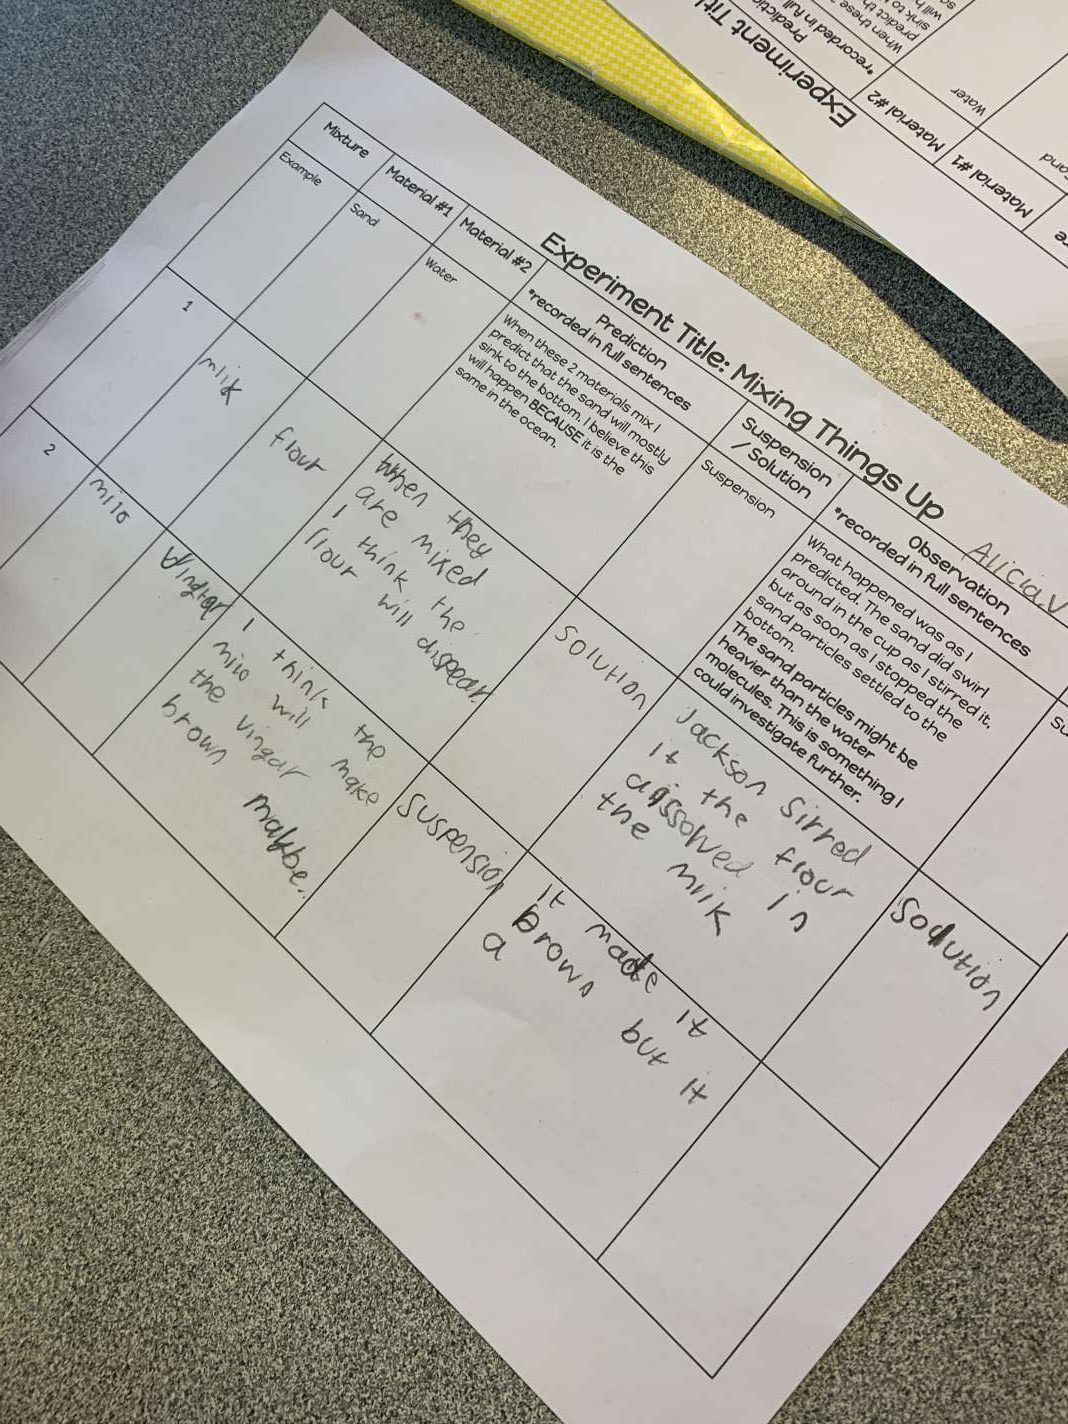 Experiment Title: Mixing Things Up
Alicia.V
Mixture
Material #1
Material #2
Prediction
*recorded in full sentences
Suspension
/ Solution
Observation
*recorded in full sentences
Example
Sand
Water
When these 2 materials mix I
predict that the sand will mostly
sink to the bottom. I believe this
will happen BECAUSE it is the
same in the ocean.
Suspension
What happened was as I
predicted. The sand did swirl
around in the cup as I stirred it,
but as soon as I stopped the
sand particles settled to the
bottom.
The sand particles might be
heavier than the water
molecules. This is something I
could investigate further.
Su
1
milk
flour
When they
are mixed
I think the
flour will dispear.
Solution
Jackson Sirred
it the flour
dissolved in
the milk
Solution
2
milo
Vingar
I think the
milo will make
the vingar
brown maybe.
Suspension
It made it
brown but it
a
Experiment Titl
Material #1
Material #2
*recorded in full
Water
When these 2
predict th
sink to
will h